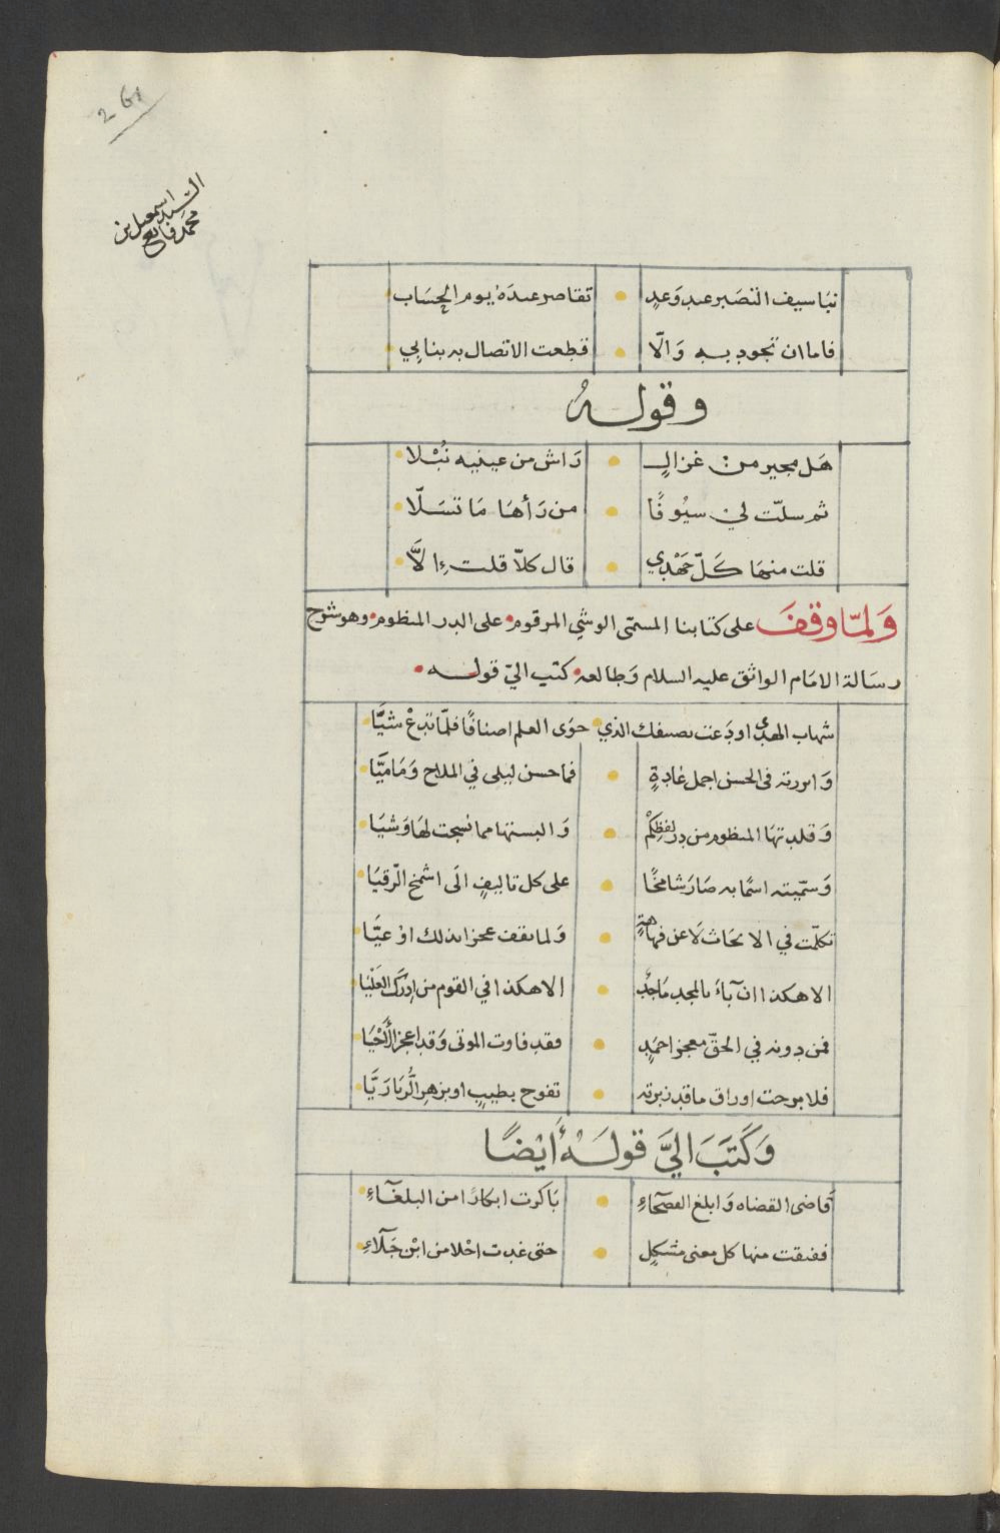 261
السيد اسمعيل بن
محمد فايع
نبا سيف التصبر عند وعدٍ تقاصر عندهُ يوم الحِسَاب
فاما ان تجود به وَالّا قطعت الاتصال به بنابي
وقوله
هَل مجير من غزالٍ رَاش من عينيه نُبْلا
ثم سلّت لي سيُوفًا من رَأهَا مَا تسَلّا
قلت منهَا كَلّ جَهْدِي قال كلاّ قلت إلاَّ
وَلمّا وقفَ على كتابنا المسمّى الوشي المرقوم على الدر المنظوم وهو شرح
رسَالة الامَام الواثق عليه السلام وَطالعه كتب اليّ قوله
شهاب الهدى اودَعت تصنيفك الذي حوَى العلم اصنافًا فلمّا تدعْ شيَّا
وَابرزته في الحسن اجمل غادةٍ فما حسن ليلى في الملاح وَمَاميَّا
وَقلدتهَا المنظوم من در لفظِكُمْ وَالبستها مما نسجت لهَا وَشيَا
وَسمّيته اسمًا به صَار شامخًا على كل تاليفٍ الَى اشمخ الرقيَا
تكلّمت في الابحَاث لَا عن فهاهةٍ وَلما تقف عجزًا بذلك اوْ عيَّا
الا هكذا ان آباءُ بالمجد مَاجدٌ الا هكذا في القوم من ادرك العَلْيَا
فمن دونه في الحقّ معجز احمدٍ فقد فاوت الموتى وَقد اعجز الأَحْيَا
فلا برحت اوراق ما قد زبرته تفوح بطيبٍ او بزهرِ الرُّبَا رَيَّا
وَكَتَبَ اليَّ قولَهُ أَيْضًا
أقاضى القضاه وَابلغ الفصحَاءِ بَاكرت ابكارًا من البلغَاءِ
ففتقت منها كل معنى مشكلٍ حتى غدت احْلا من ابْن جَلَاءِ